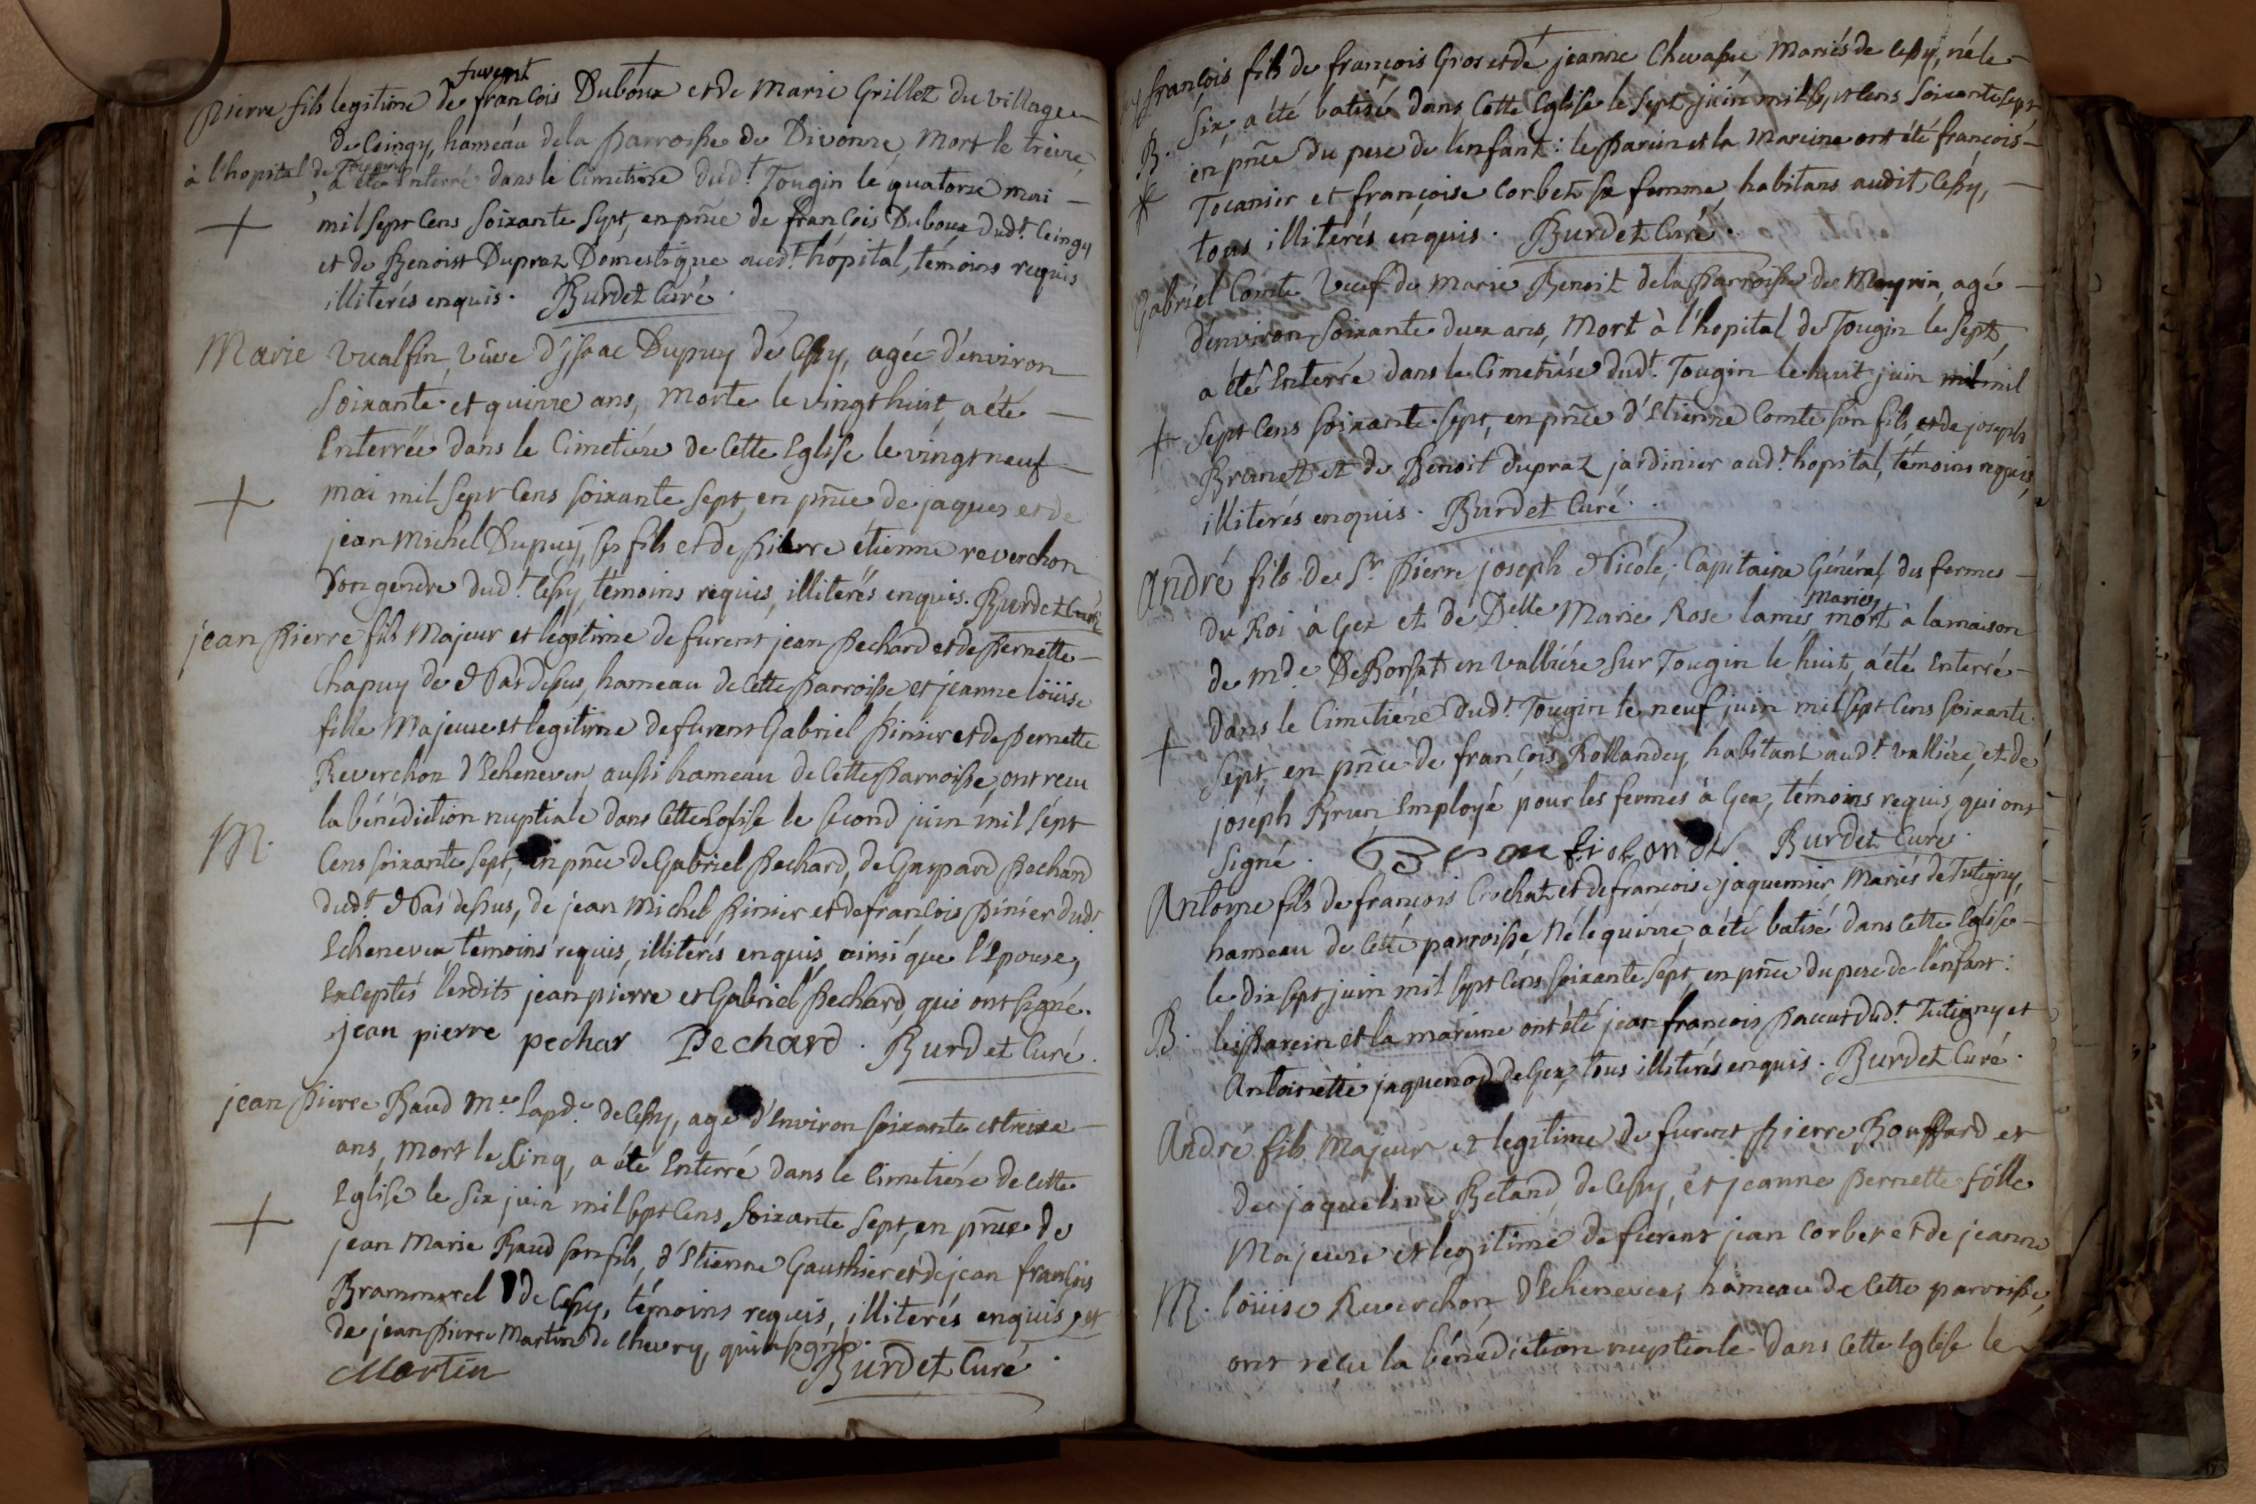 furent
Pierre fils legitime de francois Duboux et de Marie Grillet du village
de Ceingy, hameau de la parroisse de Divonne, Mort le treize
à l'hopital de Tougin, a été Enterré dans le Cimetiere dud.t Tougin le quatorze mai
mil sept Cens soixante sept, en pñce de francois Duboux dud.t Ceingy
et de Benoist Dupraz Domestique aud.t hôpital, témoins requis
illiterés enquis. Burdet Curé.
Marie Vualfin, vûve d'jsaac Dupuy de Cessy, agée d'environ
soixante et quinze ans, Morte le vingt huit, a été
Enterrée dans le Cimetiére de Cette Eglise le vingt neuf
mai mil sept Cens soixante sept, en pñce de jaques et de
jean Michel Dupuy, ses fils et de Pierre étienne reverchon
son gendre dud.t Cessy, témoins requis, illiterés enquis. Burdet Curé
jean Pierre fils Majeur et legitime de furent jean Pechard et de Pernette
Chapuy de Pardessus, hameau de Cette Parroisse, et jeanne loüise
fille Majeure et legitime de furent Gabriel Pinier et de Pernette
Reverchon d'Echenevex, aussi hameau de Cette Parroisse, ont recu
la bénédiction nuptiale dans Cette Eglise le second juin mil sept
M.
Cens soixante sept, en pñce de Gabriel Pechard, de Gaspard Pechard
dud.t Pas dessus, de jean Michel Pinier et de francois Pinier dud.t
Echenevex, témoins requis, illiterés enquis, ainsi que l'Epouse,
Exceptés lesdits jean pierre et Gabriel Pechard, qui ont signé.
jean pierre pechar Pechard. Burdet Curé.
jean Pierre Baud M.e Lapd.e de Cessy, agé d'Environ soixante et treize
ans, Mort le Cinq, a été Enterré dans le Cimetiére de Cette
Eglise le six juin mil sept Cens soixante sept, en pñce de
jean Marie Baud son fils, d'Etienne Gauthier et de jean francois
Brammerel de Cessy, témoins requis, illiterés enquis, et
de jean Pierre Martin de Chevry, qui a signé.
Martin Burdet Curé.
francois fils de françois Gros et de jeanne Chevassu Mariés de Cessy, né le
six, a été batisé dans Cette Eglise le sept juin mil sept Cens soixante sept,
B.
en pñce du pere de l'enfant: le Parein et la Mareine ont été françois
Tocanier et françoise Corbet sa femme, habitans audit Cessy,
tous illiterés enquis. Burdet Curé.
Gabriel Comte Veuf de Marie Benoit de la Parroisse de Meyrin, agé
d'environ soixante deux ans, Mort à l'hopital de Tougin le sept,
a été Enterré dans le Cimetiére dud.t Tougin le huit juin mil
sept Cens soixante sept, en pñce d'Etienne Comte son fils et de joseph
Brunet et de Benoit dupraz jardinier aud.t hopital, témoins requis,
illiterés enquis. Burdet Curé.
André fils de S.r Pierre joseph Nicole, Capitaine Général des fermes
du Roi à Gex et de D.elle Marie Rose lamis mariés mort à la maison
de M.de DeBorsat en Valliére sur Tougin le huit, a été Enterré
dans le Cimetiere dud.t Tougin le neuf juin mil sept Cens soixante
sept, en pñce de francois Rollandey habitant aud.t valliére, et de
joseph Brun Employé pour les fermes à Gex, témoins requis, qui ont
signé. Burdet Curé.
Antoine fils de francois Crochat et de francoise jaquemier Mariés de Tutigny,
hameau de Cette parroisse, Né le quinze, a été batisé dans Cette Eglise
le dix sept juin mil sept Cens soixante sept, en pñce du pere de l'enfant:
B.
le Parein et la mareine ont été jean francois Paccut dud.t Tutigny et
Antoinette jaquenod de Gex, tous illiterés enquis. Burdet Curé.
André fils Majeur et legitime de furent Pierre Bouffard et
de jaqueline Betand, de Cessy, et jeanne pernette fille
Majeure et legitime de furent jean Corbet et de jeanne
M.
loüise Reverchon, d'Echenevex, hameau de Cette parroisse,
ont reçu la bénédiction nuptiale dans Cette Eglise le